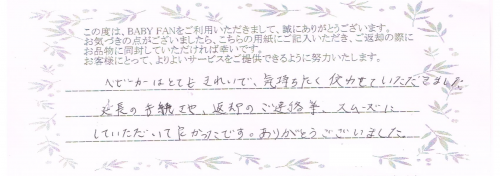 この度は、BABY FANをご利用いただきまして、誠にありがとうございます。
お気づきの点がございましたら、こちらの用紙にご記入いただき、ご返却の際に
お品物に同封していただければ幸いです。
お客様にとって、よりよいサービスをご提供できるように努力いたします。
ベビーカーはとてもきれいで、気持ちよく使わせていただきました。
延長の手続きや、返却のご連絡等、スムーズに
していただいて良かったです。ありがとうございました。